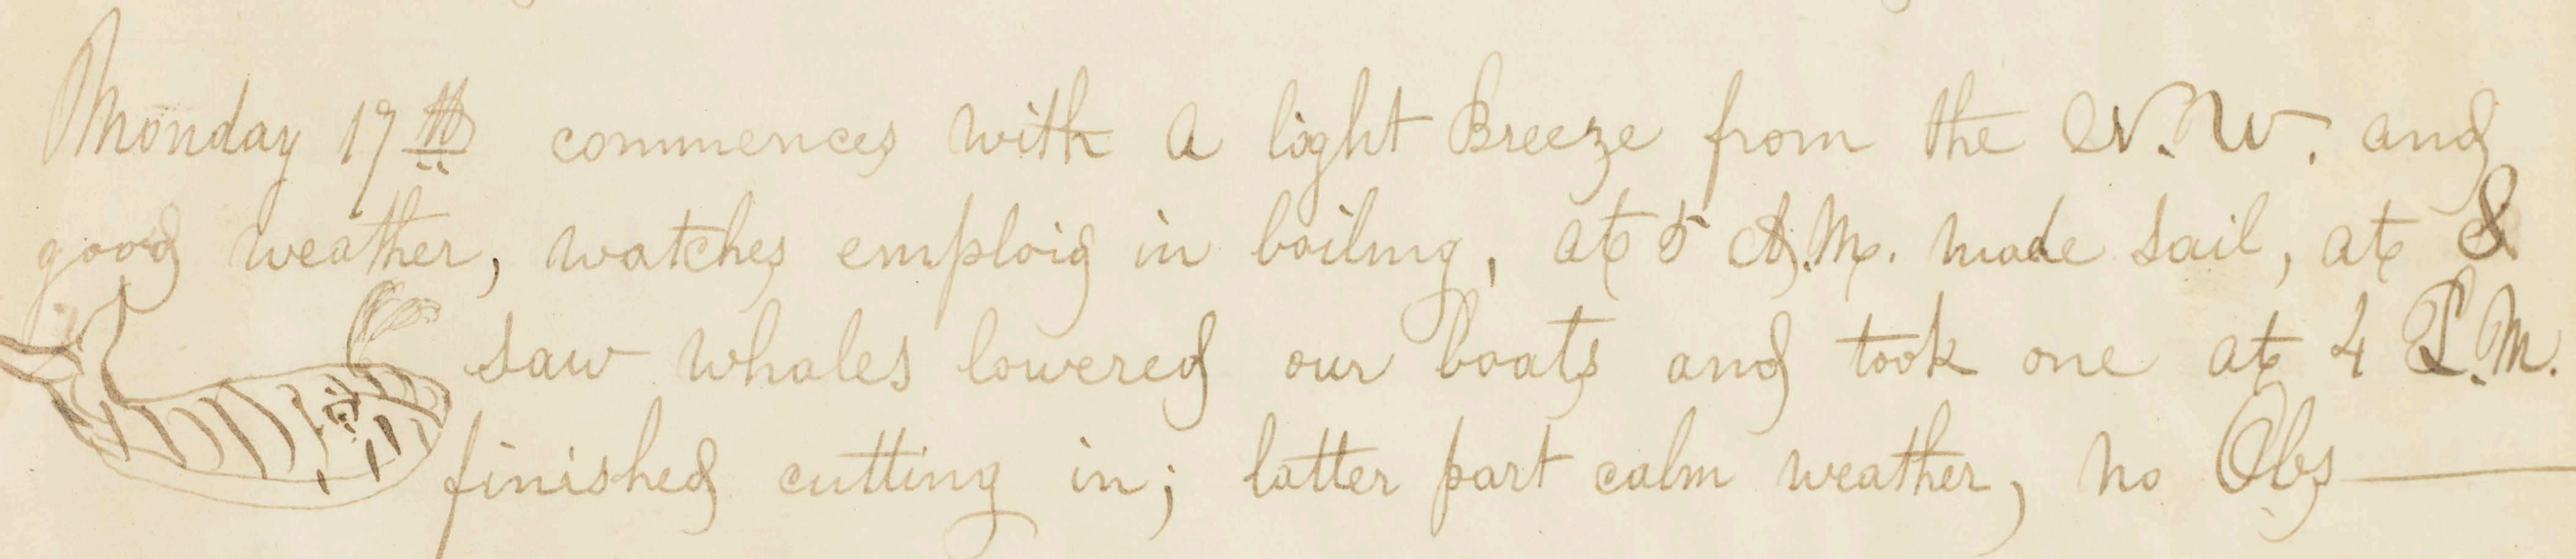 Monday 17th commences with a light Breeze from the N.W. and
good weather, watches emploid in boiling, at 5 A.M. made sail, at 8
saw whales lowered our boats and took one at 4 P.M.
finished cutting in; latter part calm weather, no Obs